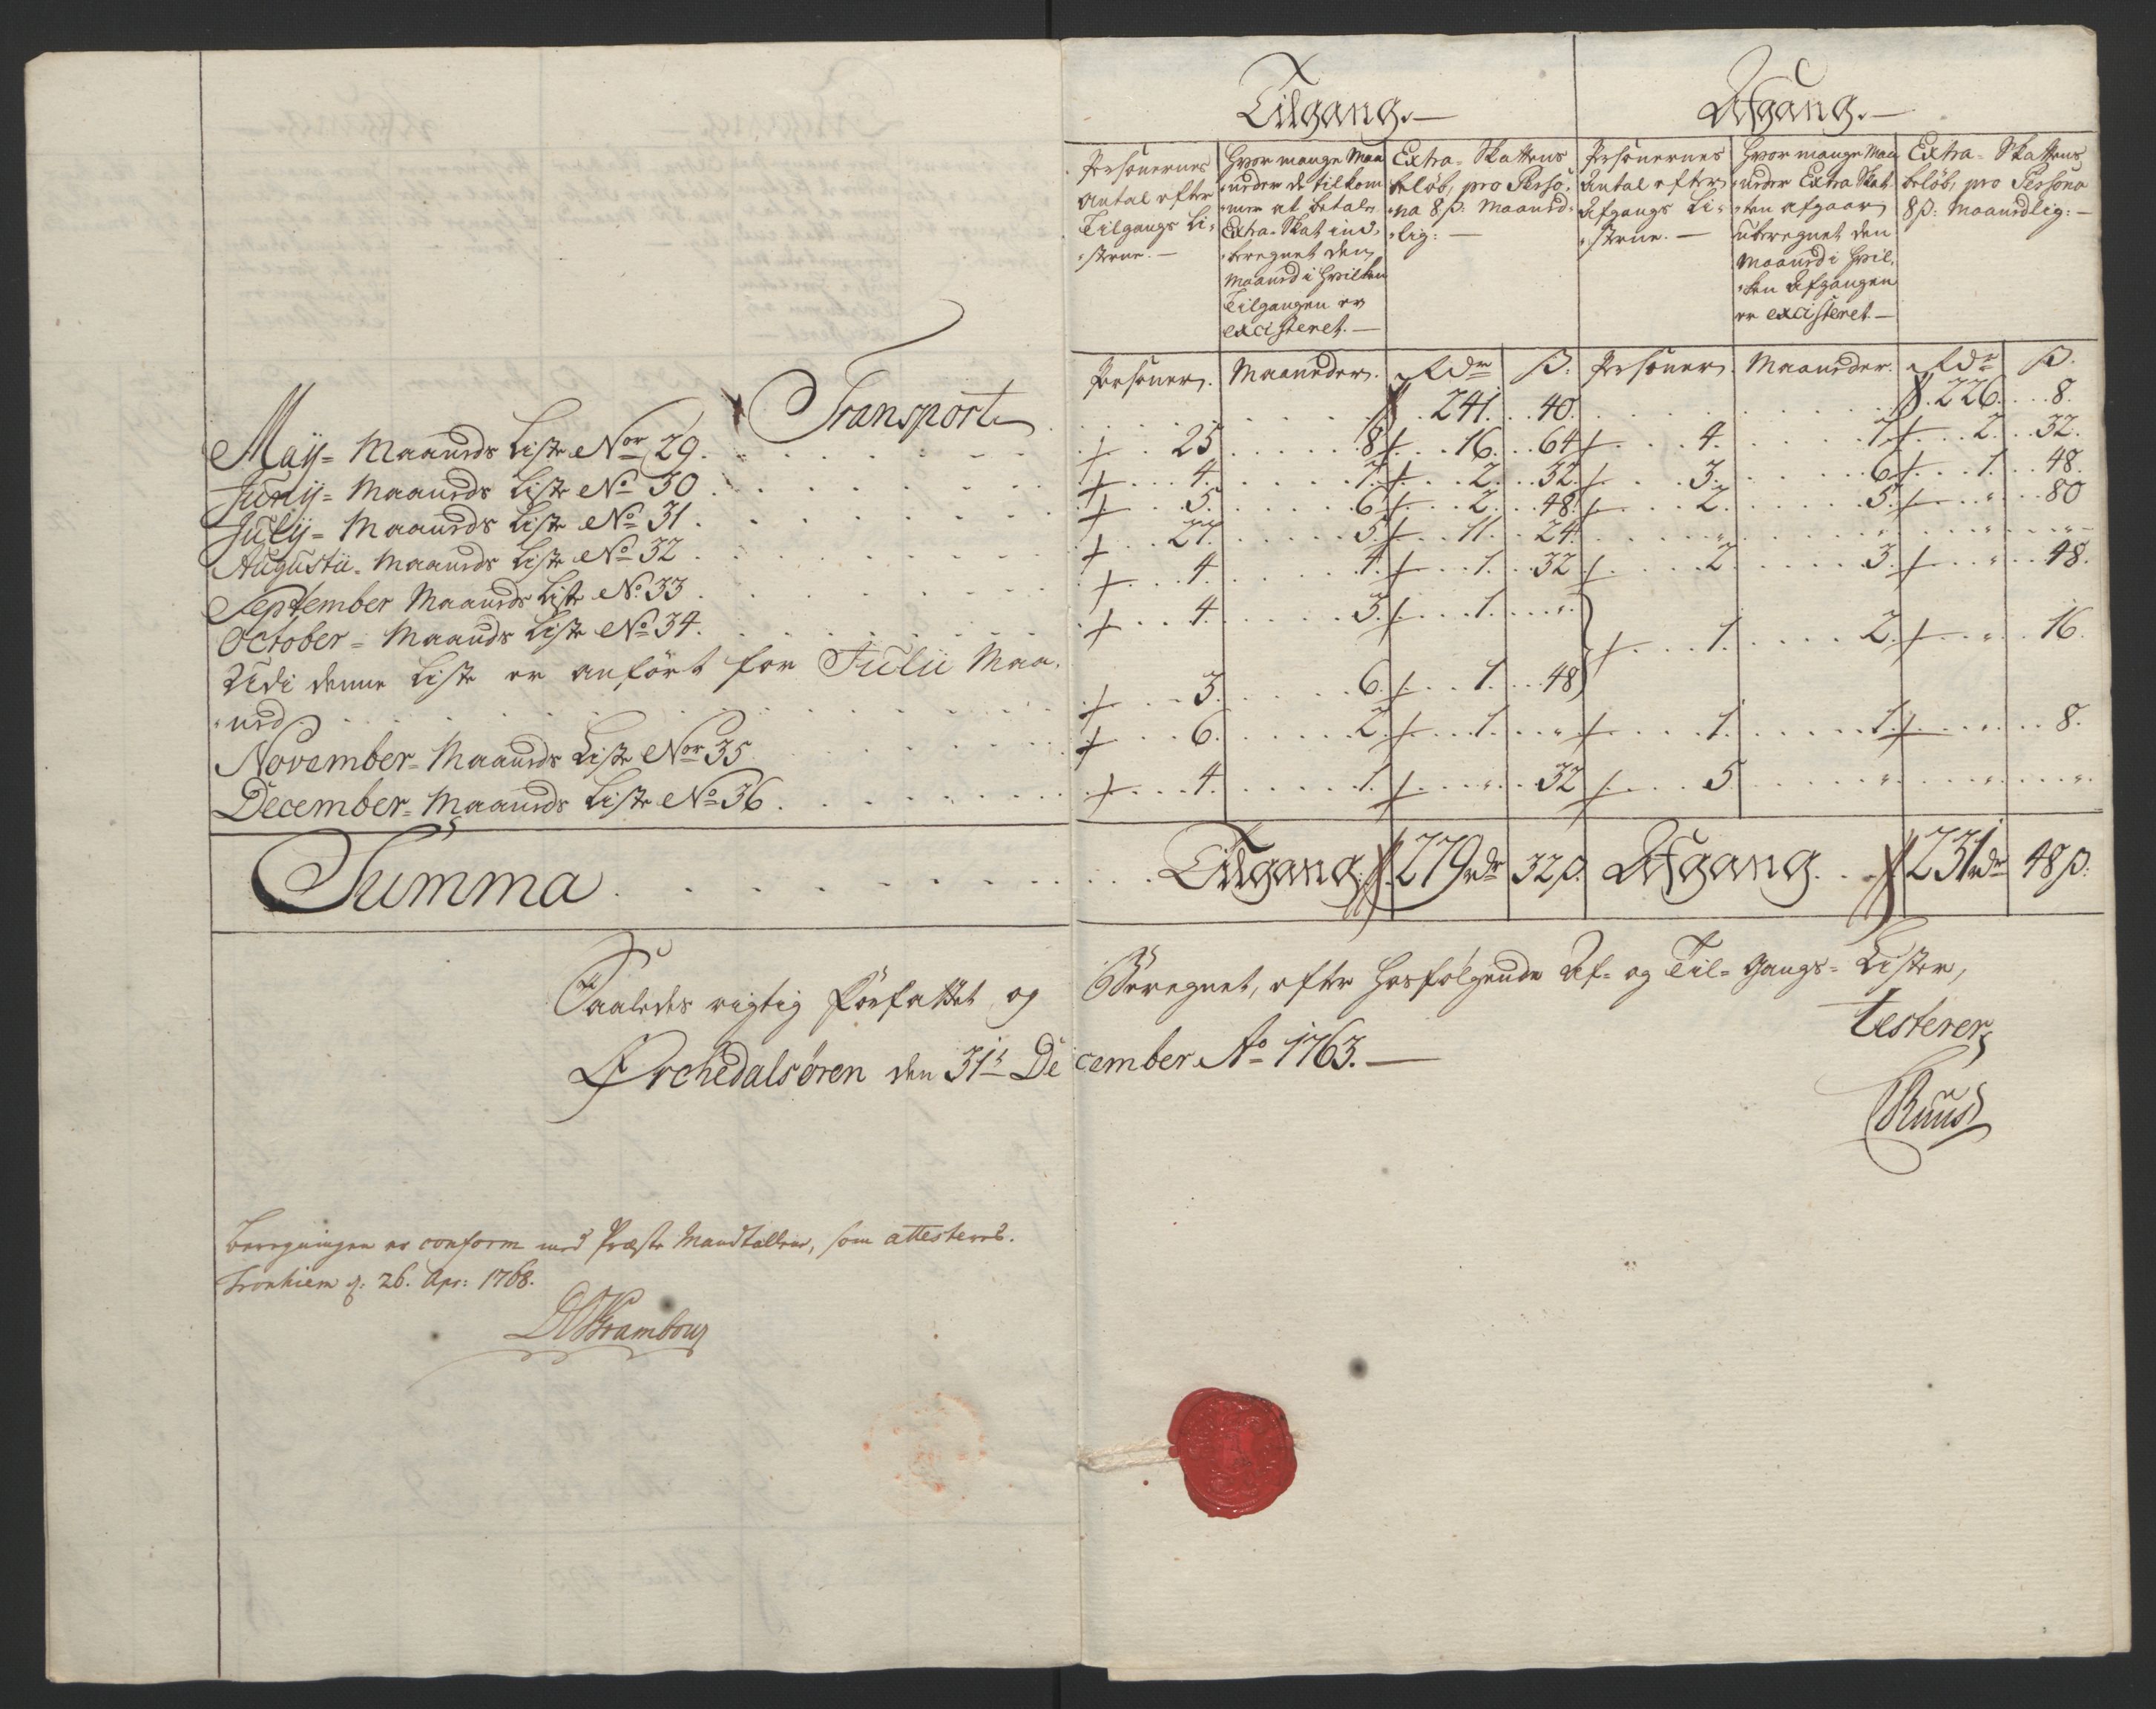 Tilgang.— Afgang.—
Personernes
Antal efter
Tilgangs Li-
-sterne.—
Hvor mange Maa
-neder de tilkom
-mer at betale
Extra-Skat ind-
-beregnet den
Maaned i hvilken
Tilgangen er
excisteret.—
Extra-Skattens
beløb, pro Perso-
-na 8 β: Maaned-
-lig:—
Personernes
Antal efter
Afgangs Li-
-sterne.—
Hvor mange Maa
-neder Extra Skat
-ten afgaar
uberegnet den
Maaned i hvil-
-ken Afgangen
er excisteret—
Extra-Skattens
beløb, pro Persona
8 β: Maanedlig:—
Personer. Maaneder. Rdr β. Personer. Maaneder. Rdr β.
Transport 241. 40. 226. 8.
Maij= Maaneds Liste Nor 29. 25 8 16. 64 4. 7. 2. 32.
Junij= Maaneds Liste No 30. 4. 7. 2. 32. 3. 6. 1. 48.
Julij= Maaneds Liste No 31. 5. 6 2. 48. 2. 5. " 80
Augustii= Maaneds Liste No 32 27. 5. 11. 24. " " " "
September Maaneds Liste No 33 4. 4. 1. 32 2 3. " 48.
October= Maaneds Liste No 34. 4. 3. 1. " 1. 2. " 16.
Udi denne Liste er anført for Julii Maa-
-ned 3. 6. 1. 48
November= Maaneds Liste Nor 35 6. 2. 1. " 1. 1. " 8.
December= Maaneds Liste No 36. 4. 1. " 32 5 " " "
Summa Tilgang 279rdr 32β. Afgang 231rdr 48β:
Saaledes rigtig Forfattet og Beregnet, efter hosfølgende Af- og Til-Gangs-Lister,
testerer
Ørchedalsøren den 31te December Ao 1763.—
Beregningen er conform med Præste Mandtallene, som attesteres.
Tronhiem d: 26. Apr: 1768.